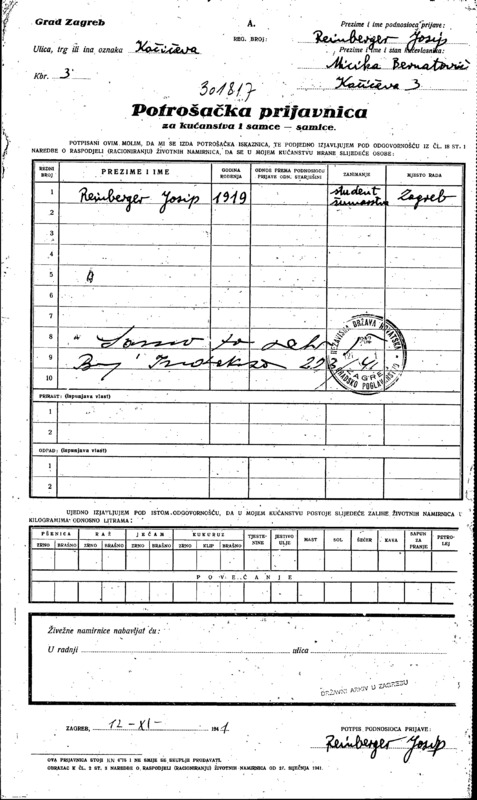 Grad Zagreb
A.
Prezime i ime podnosioca prijave:
REG. BROJ:
Reinberger Josip
Ulica, trg ili ina oznaka Kačićeva
Prezime i ime i stan
Micika
Kbr. 3
Kačićeva 3
301817
Potrošačka prijavnica
za kućanstva i samce — samice.
POTPISANI OVIM MOLIM, DA MI SE IZDA POTROŠAČKA ISKAZNICA, TE PODJEDNO IZJAVLJUJEM POD ODGOVORNOŠĆU IZ ČL. 18 ST. 1
NAREDBE O RASPODJELI (RACIONIRANJU) ŽIVOTNIH NAMIRNICA, DA SE U MOJEM KUĆANSTVU HRANE SLIJEDEĆE OSOBE:
REDNI BROJ
PREZIME I IME
GODINA ROĐENJA
ODNOS PREMA PODNOSIOCU PRIJAVE ODN. STARJEŠINI
ZANIMANJE
MJESTO RADA
1 Reinberger Josip 1919 student šumarstva Zagreb
2
3
4
5
6
7
8 Samo to
9
10
NEZAVISNA DRŽAVA HRVATSKA
GRADSKO POGLAVARSTVO
ZAGREB
PRIRAST: (Ispunjava vlast)
1
2
OTPAD: (Ispunjava vlast)
1
2
UJEDNO IZJAVLJUJEM POD ISTOM ODGOVORNOŠĆU, DA U MOJEM KUĆANSTVU POSTOJE SLIJEDEĆE ZALIHE ŽIVOTNIH NAMIRNICA U
KILOGRAMIMA ODNOSNO LITRAMA:
PŠENICA
RAŽ
JEČAM
KUKURUZ
TJESTENINE
JESTIVO ULJE
MAST
SOL
ŠEĆER
KAVA
SAPUN ZA PRANJE
PETROLEJ
ZRNO BRAŠNO ZRNO BRAŠNO ZRNO BRAŠNO ZRNO KLIP BRAŠNO
POVEĆANJE
Živežne namirnice nabavljat ću:
U radnji ulica
DRŽAVNI ARHIV U ZAGREBU
ZAGREB, 12-XI- 1941
POTPIS PODNOSIOCA PRIJAVE:
Reinberger Josip
OVA PRIJAVNICA STOJI I NE SMIJE SE SKUPLJE PRODAVATI.
OBRAZAC K ČL. 2 ST. 2 NAREDBE O RASPODJELI (RACIONIRANJU) ŽIVOTNIH NAMIRNICA OD 27. SIJEČNJA 1941.